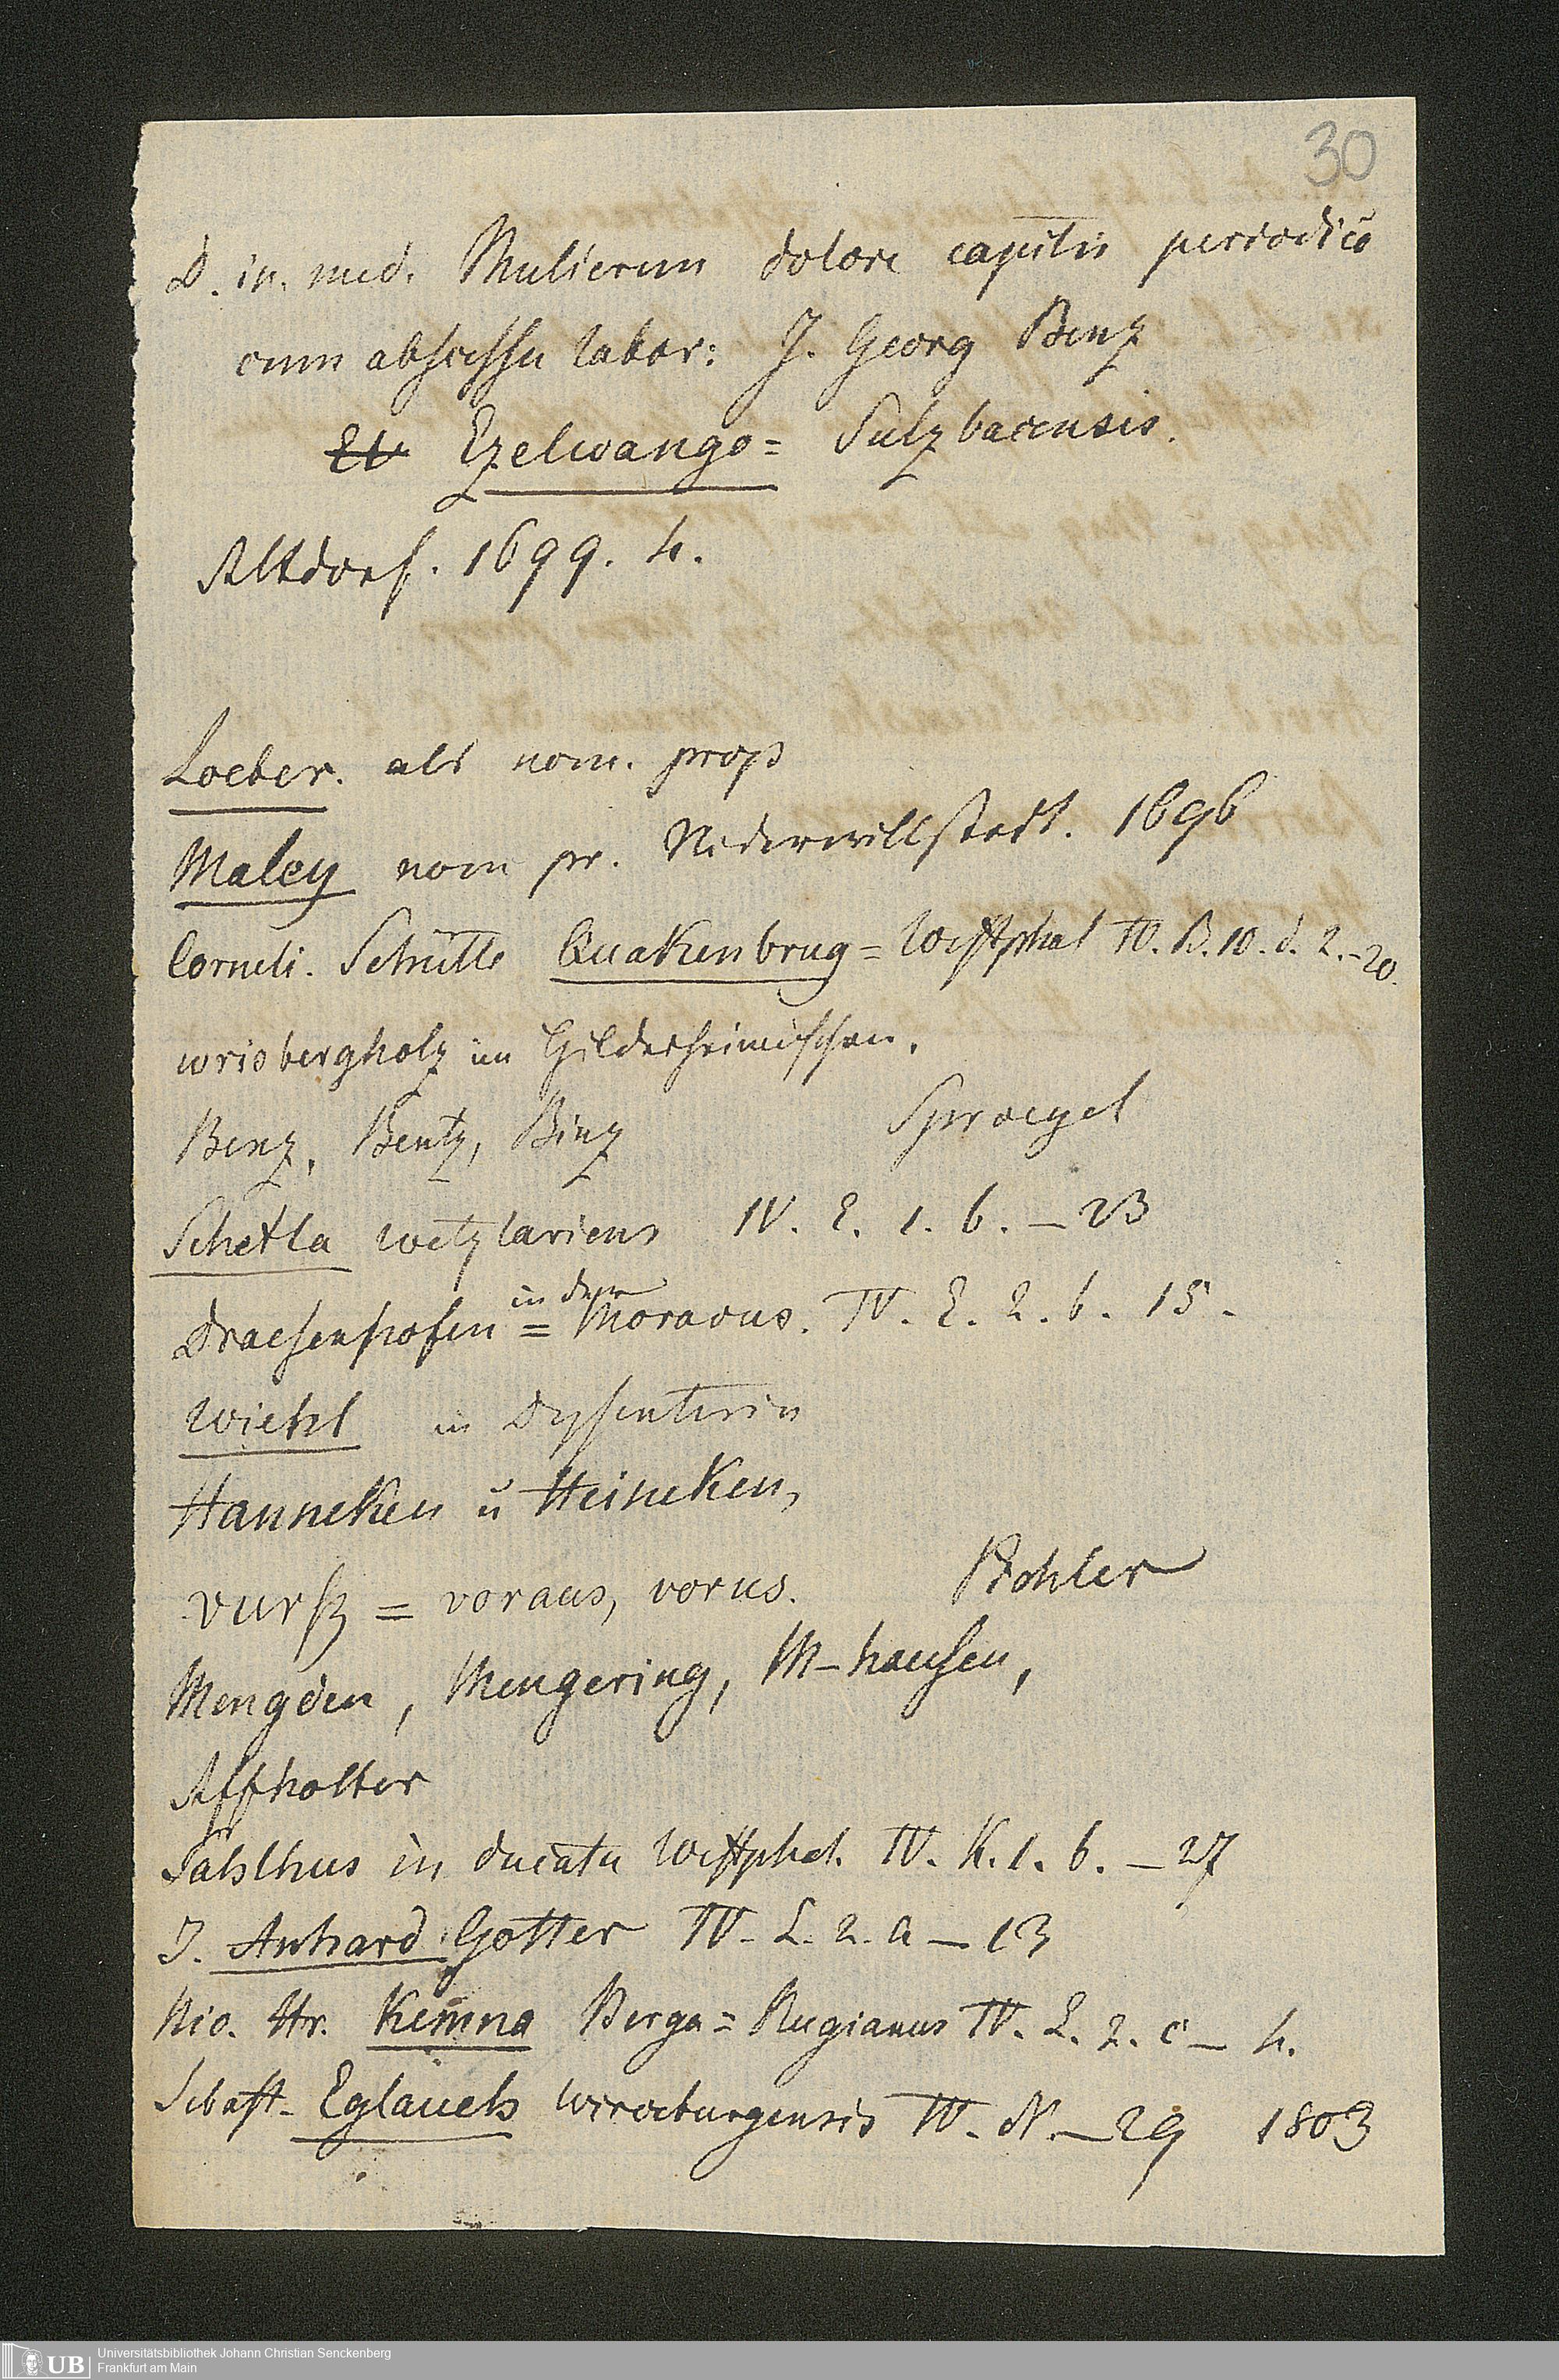 30
D. in. med. Mulierem dolore capitis periodico
cum abscessu labor: J. Georg Benz
Et Ezelwango= Sulzbacensis.
Altdorf. 1699. 4.
Loeber. als nom. prop
Maley nom pr. Niderwillstadt. 1696
Corneli. Schütte Quakenbrug = Westphal IV. B. 10. d. 2.-20.
wrisbergholz im Hildesheimischen.
Benz, Bentz, Binz Sproegel
Schetla wetzlariens IV. E. 1. b. – 23
in der
Drasenhofen = Moravus. IV. E. 2. b. 15-
Wiehl in Dysenteria
Hanneken u Heineken,
vurß = voraus, vorus. Bohler
Mengden, Mengering, M-hausen,
Affholter
Sahlhus in ducatu Westphal. IV. K. 1. b. – 27
J. Anhard Gotter IV. L. 2. a – 13
Nic. Hr. Kemna Berga = Rugianus IV. L. 2. c – 4.
Sebast. Eglauch wirceburgensis IV. N. – 29 1803
Universitätsbibliothek Johann Christian Senckenberg
UB Frankfurt am Main